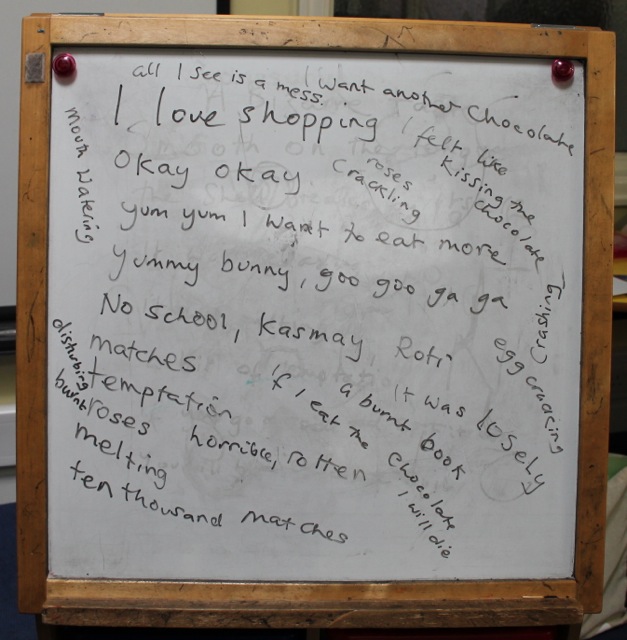 all I see is a mess.
I want another chocolate
I love shopping
I felt like
kissing the
chocolate
roses
crackling
mouth watering
Okay okay
yum yum I want to eat more
yummy bunny, goo goo ga ga
No school, kasmay, Roti
crashing
egg cracking
matches
disturbing
temptation
burnt
roses
horrible, rotten
If I eat the chocolate
I will die
a burnt book
It was losely
melting
ten thousand matches